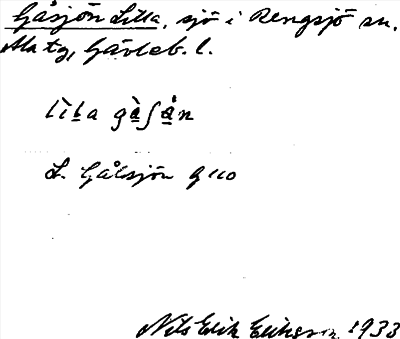 Gåsjön Lilla, sjö i Rengsjö sn,
Ala tg, Gävleb. l.
L. Gåsjön G 110
Nils Erik Eriksson 1933